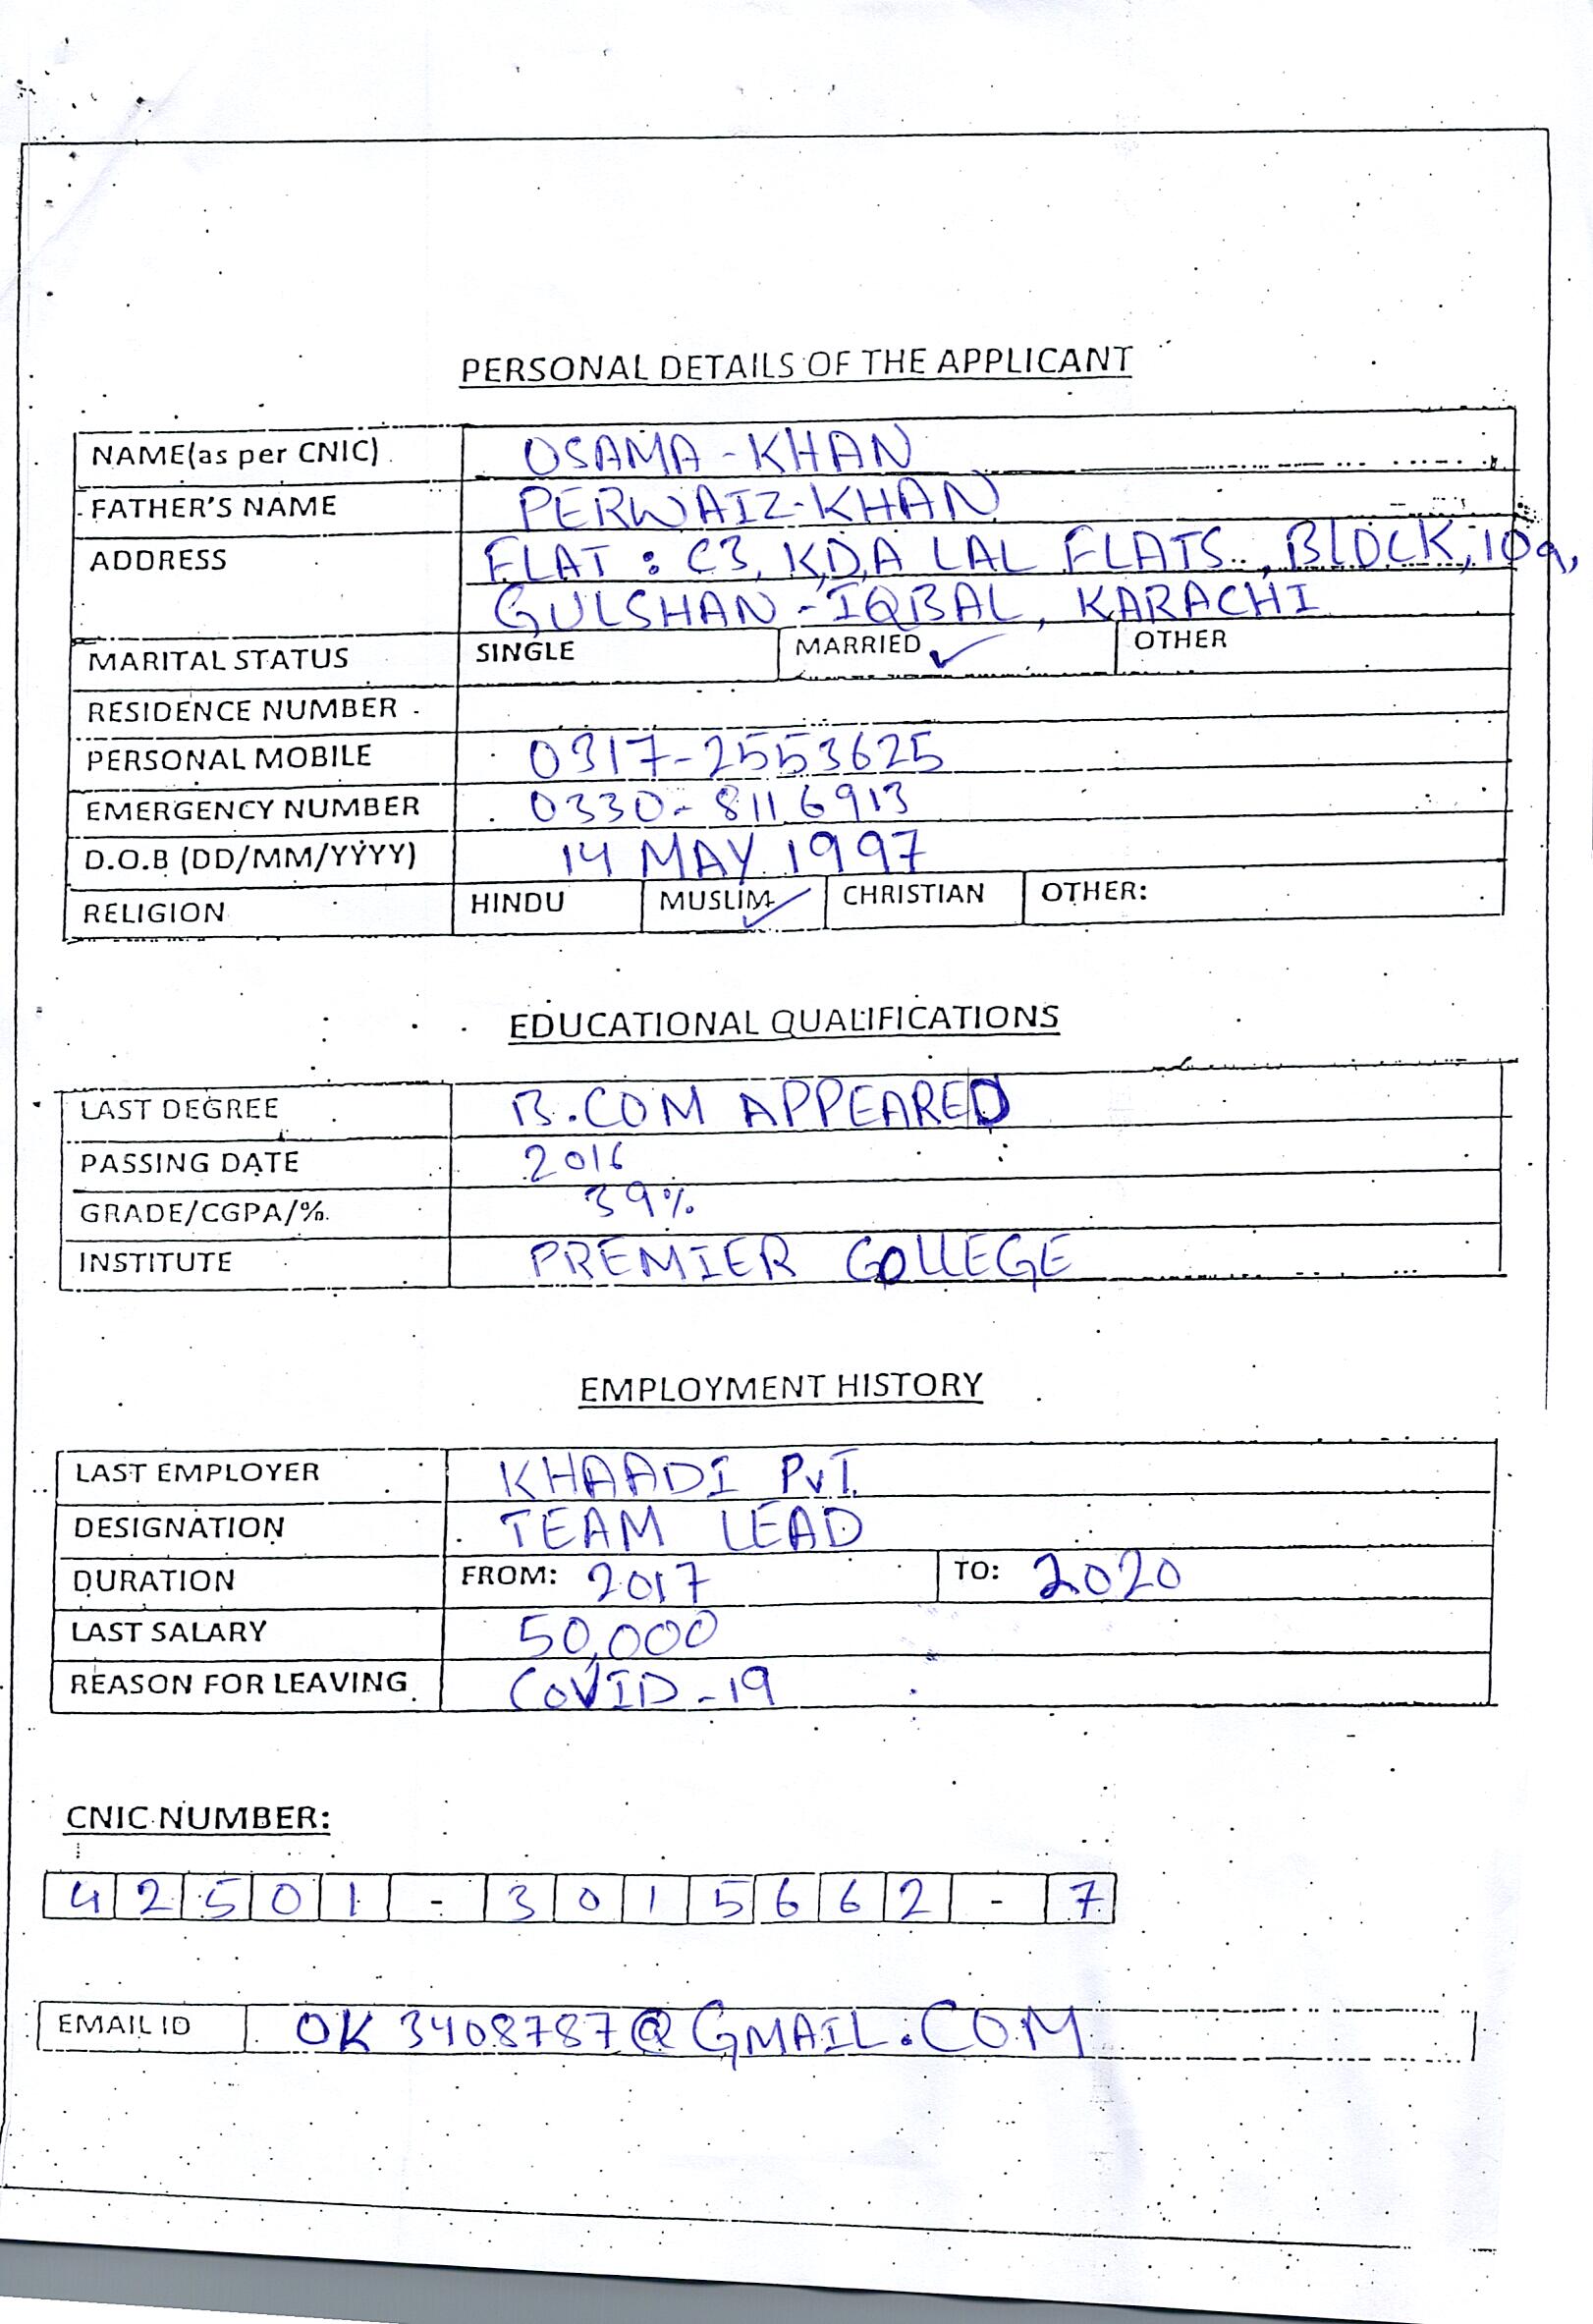 PERSONAL DETAILS OF THE APPLICANT
NAME(as per CNIC) OSAMA-KHAN
FATHER'S NAME PERWAIZ-KHAN
ADDRESS FLAT: C3, K.D.A LAL FLATS, BLOCK, 10a,
GULSHAN-IQBAL, KARACHI
MARITAL STATUS SINGLE MARRIED ✓ OTHER
RESIDENCE NUMBER
PERSONAL MOBILE 0317-2553625
EMERGENCY NUMBER 0330-8116913
D.O.B (DD/MM/YYYY) 14 MAY 1997
RELIGION HINDU MUSLIM ✓ CHRISTIAN OTHER:
EDUCATIONAL QUALIFICATIONS
LAST DEGREE B.COM APPEARED
PASSING DATE 2016
GRADE/CGPA/% 39%
INSTITUTE PREMIER COLLEGE
EMPLOYMENT HISTORY
LAST EMPLOYER KHAADI PvT.
DESIGNATION TEAM LEAD
DURATION FROM: 2017 TO: 2020
LAST SALARY 50,000
REASON FOR LEAVING COVID-19
CNIC NUMBER:
42501-3015662-7
EMAIL ID OK3408787@GMAIL.COM